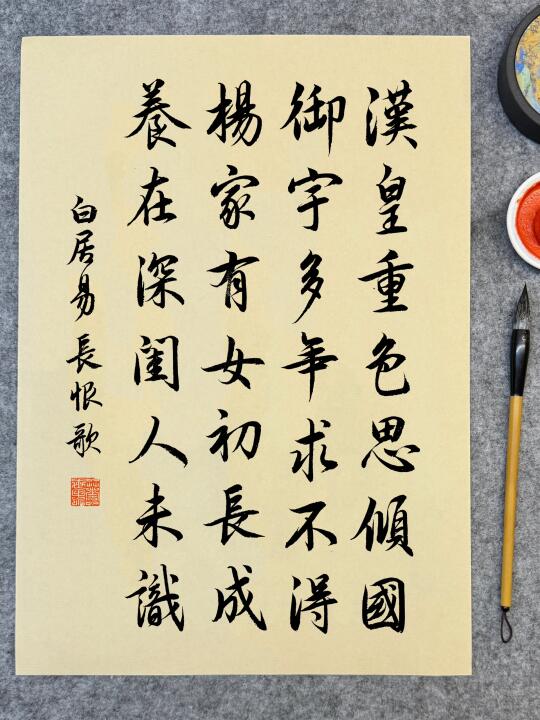 漢皇重色思傾國
御宇多年求不得
楊家有女初長成
養在深閨人未識
白居易長恨歌